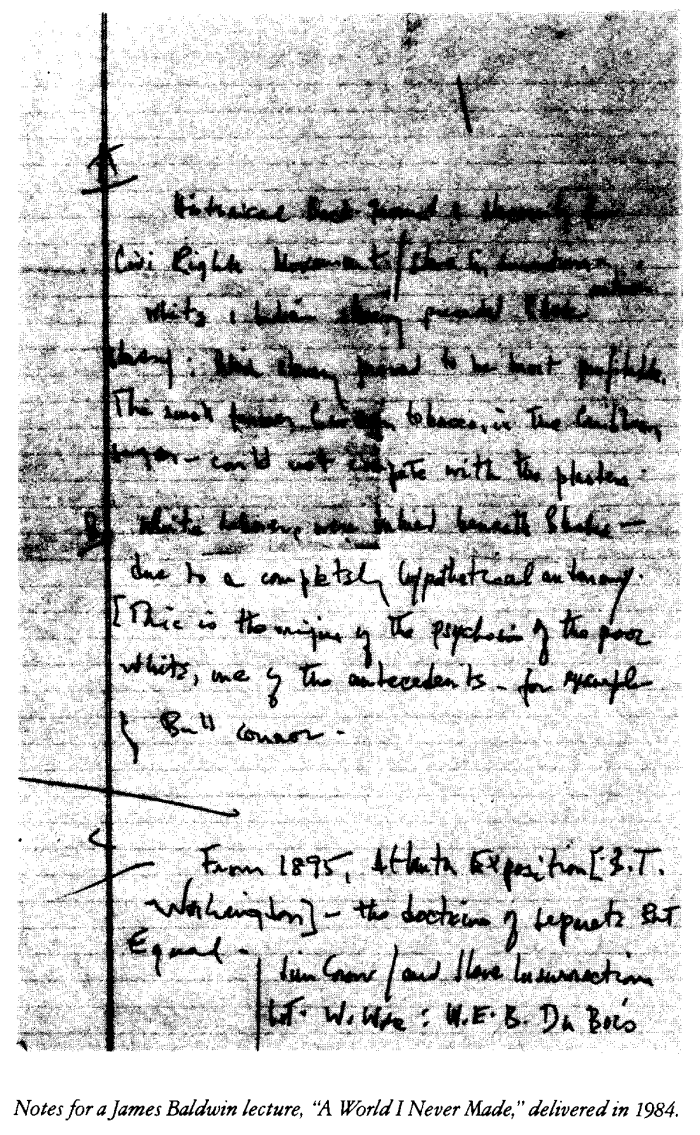 Historical Background &
Civil Rights Movement /
white & Indian slavery preceded Black
slavery: Black slavery proved to be most profitable.
The small farmer tobacco, in the Caribbean,
sugar — could not compete with the planters.
white laborers, were valued beneath Blacks —
due to a completely hypothetical autonomy.
[This is the origin of the psychosis of the poor
white, one of the antecedents - for example
Bull Connor -
From 1895, Atlanta Exposition [B.T.
Washington] — the doctrine of Separate But
Equal -
Jim Crow / and Slave Insurrection
1st W. War : W.E.B. Du Bois
Notes for a James Baldwin lecture, "A World I Never Made," delivered in 1984.